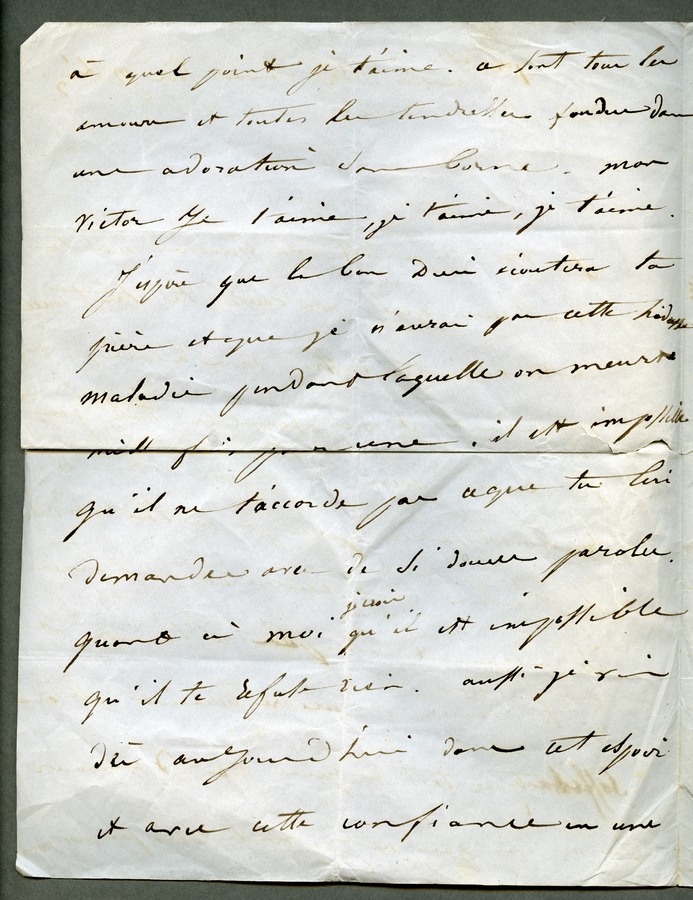 à quel point je t'aime. ce sont tous les
amours et toutes les tendresses fondues dans
une adoration sans bornes. mon
Victor Je t'aime, je t'aime, je t'aime.
J'espère que le bon Dieu écoutera ta
prière et que je n'aurai pas cette hideuse
maladie pendant laquelle on meurt
mille fois pour une. il est impossible
qu'il ne t'accorde pas ce que tu lui
demandes avec de si douces paroles.
quant à moi je crois qu'il est impossible
qu'il te refuse rien. aussi je vis
dès aujourd'hui dans cet espoir
et avec cette confiance en une